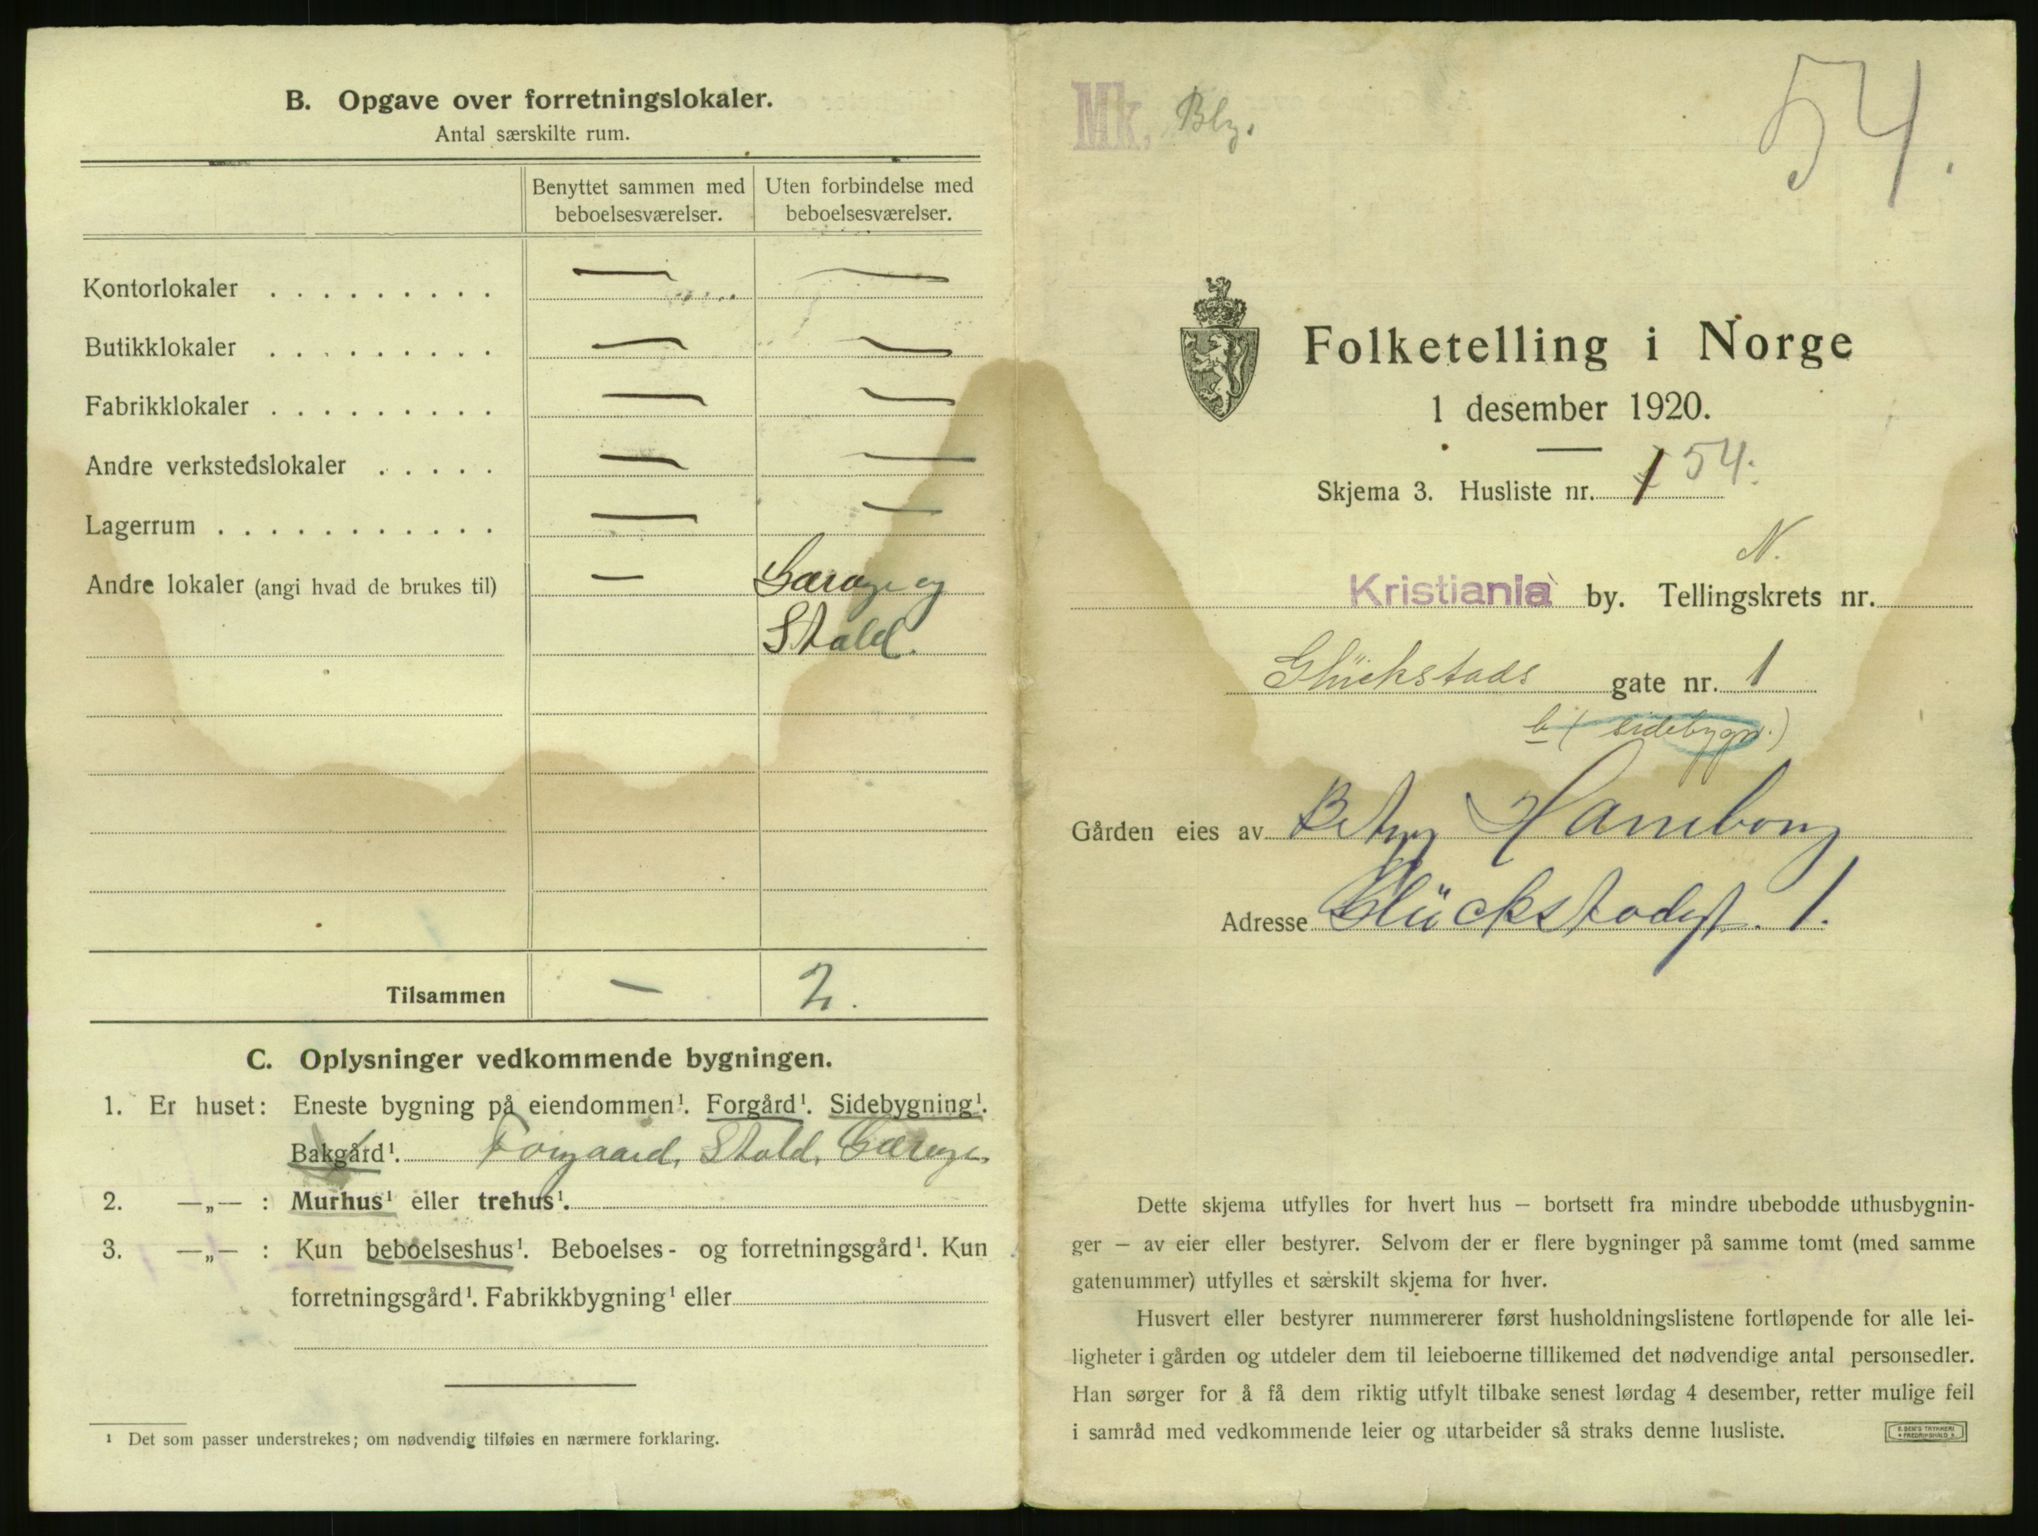 B. Opgave over forretningslokaler.
Antal særskilte rum.
Benyttet sammen med beboelsesværelser.
Uten forbindelse med beboelsesværelser.
Kontorlokaler . . . . . . . . . — —
Butikklokaler . . . . . . . . . — —
Fabrikklokaler . . . . . . . . . — —
Andre verkstedslokaler . . . . . — —
Lagerrum . . . . . . . . . . . — —
Andre lokaler (angi hvad de brukes til) — Garage og
Stald.
Tilsammen — 2.
C. Oplysninger vedkommende bygningen.
1. Er huset: Eneste bygning på eiendommen¹. Forgård¹. Sidebygning¹.
Bakgård¹. Forgaard, Stald, Garage.
2. —„— : Murhus¹ eller trehus¹.
3. —„— : Kun beboelseshus¹. Beboelses- og forretningsgård¹. Kun
forretningsgård¹. Fabrikkbygning¹ eller
¹ Det som passer understrekes; om nødvendig tilføies en nærmere forklaring.
Mk. Blg.
54.
Folketelling i Norge
1 desember 1920.
Skjema 3. Husliste nr. 1 54.
N.
Kristiania by. Tellingskrets nr.
Glückstads gate nr. 1
b (sidebygn.)
Gården eies av Betzy
Adresse Glückstadgt. 1.
Dette skjema utfylles for hvert hus — bortsett fra mindre ubebodde uthusbygnin-
ger — av eier eller bestyrer. Selvom der er flere bygninger på samme tomt (med samme
gatenummer) utfylles et særskilt skjema for hver.
Husvert eller bestyrer nummererer først husholdningslistene fortløpende for alle lei-
ligheter i gården og utdeler dem til leieboerne tillikemed det nødvendige antal personsedler.
Han sørger for å få dem riktig utfylt tilbake senest lørdag 4 desember, retter mulige feil
i samråd med vedkommende leier og utarbeider så straks denne husliste.